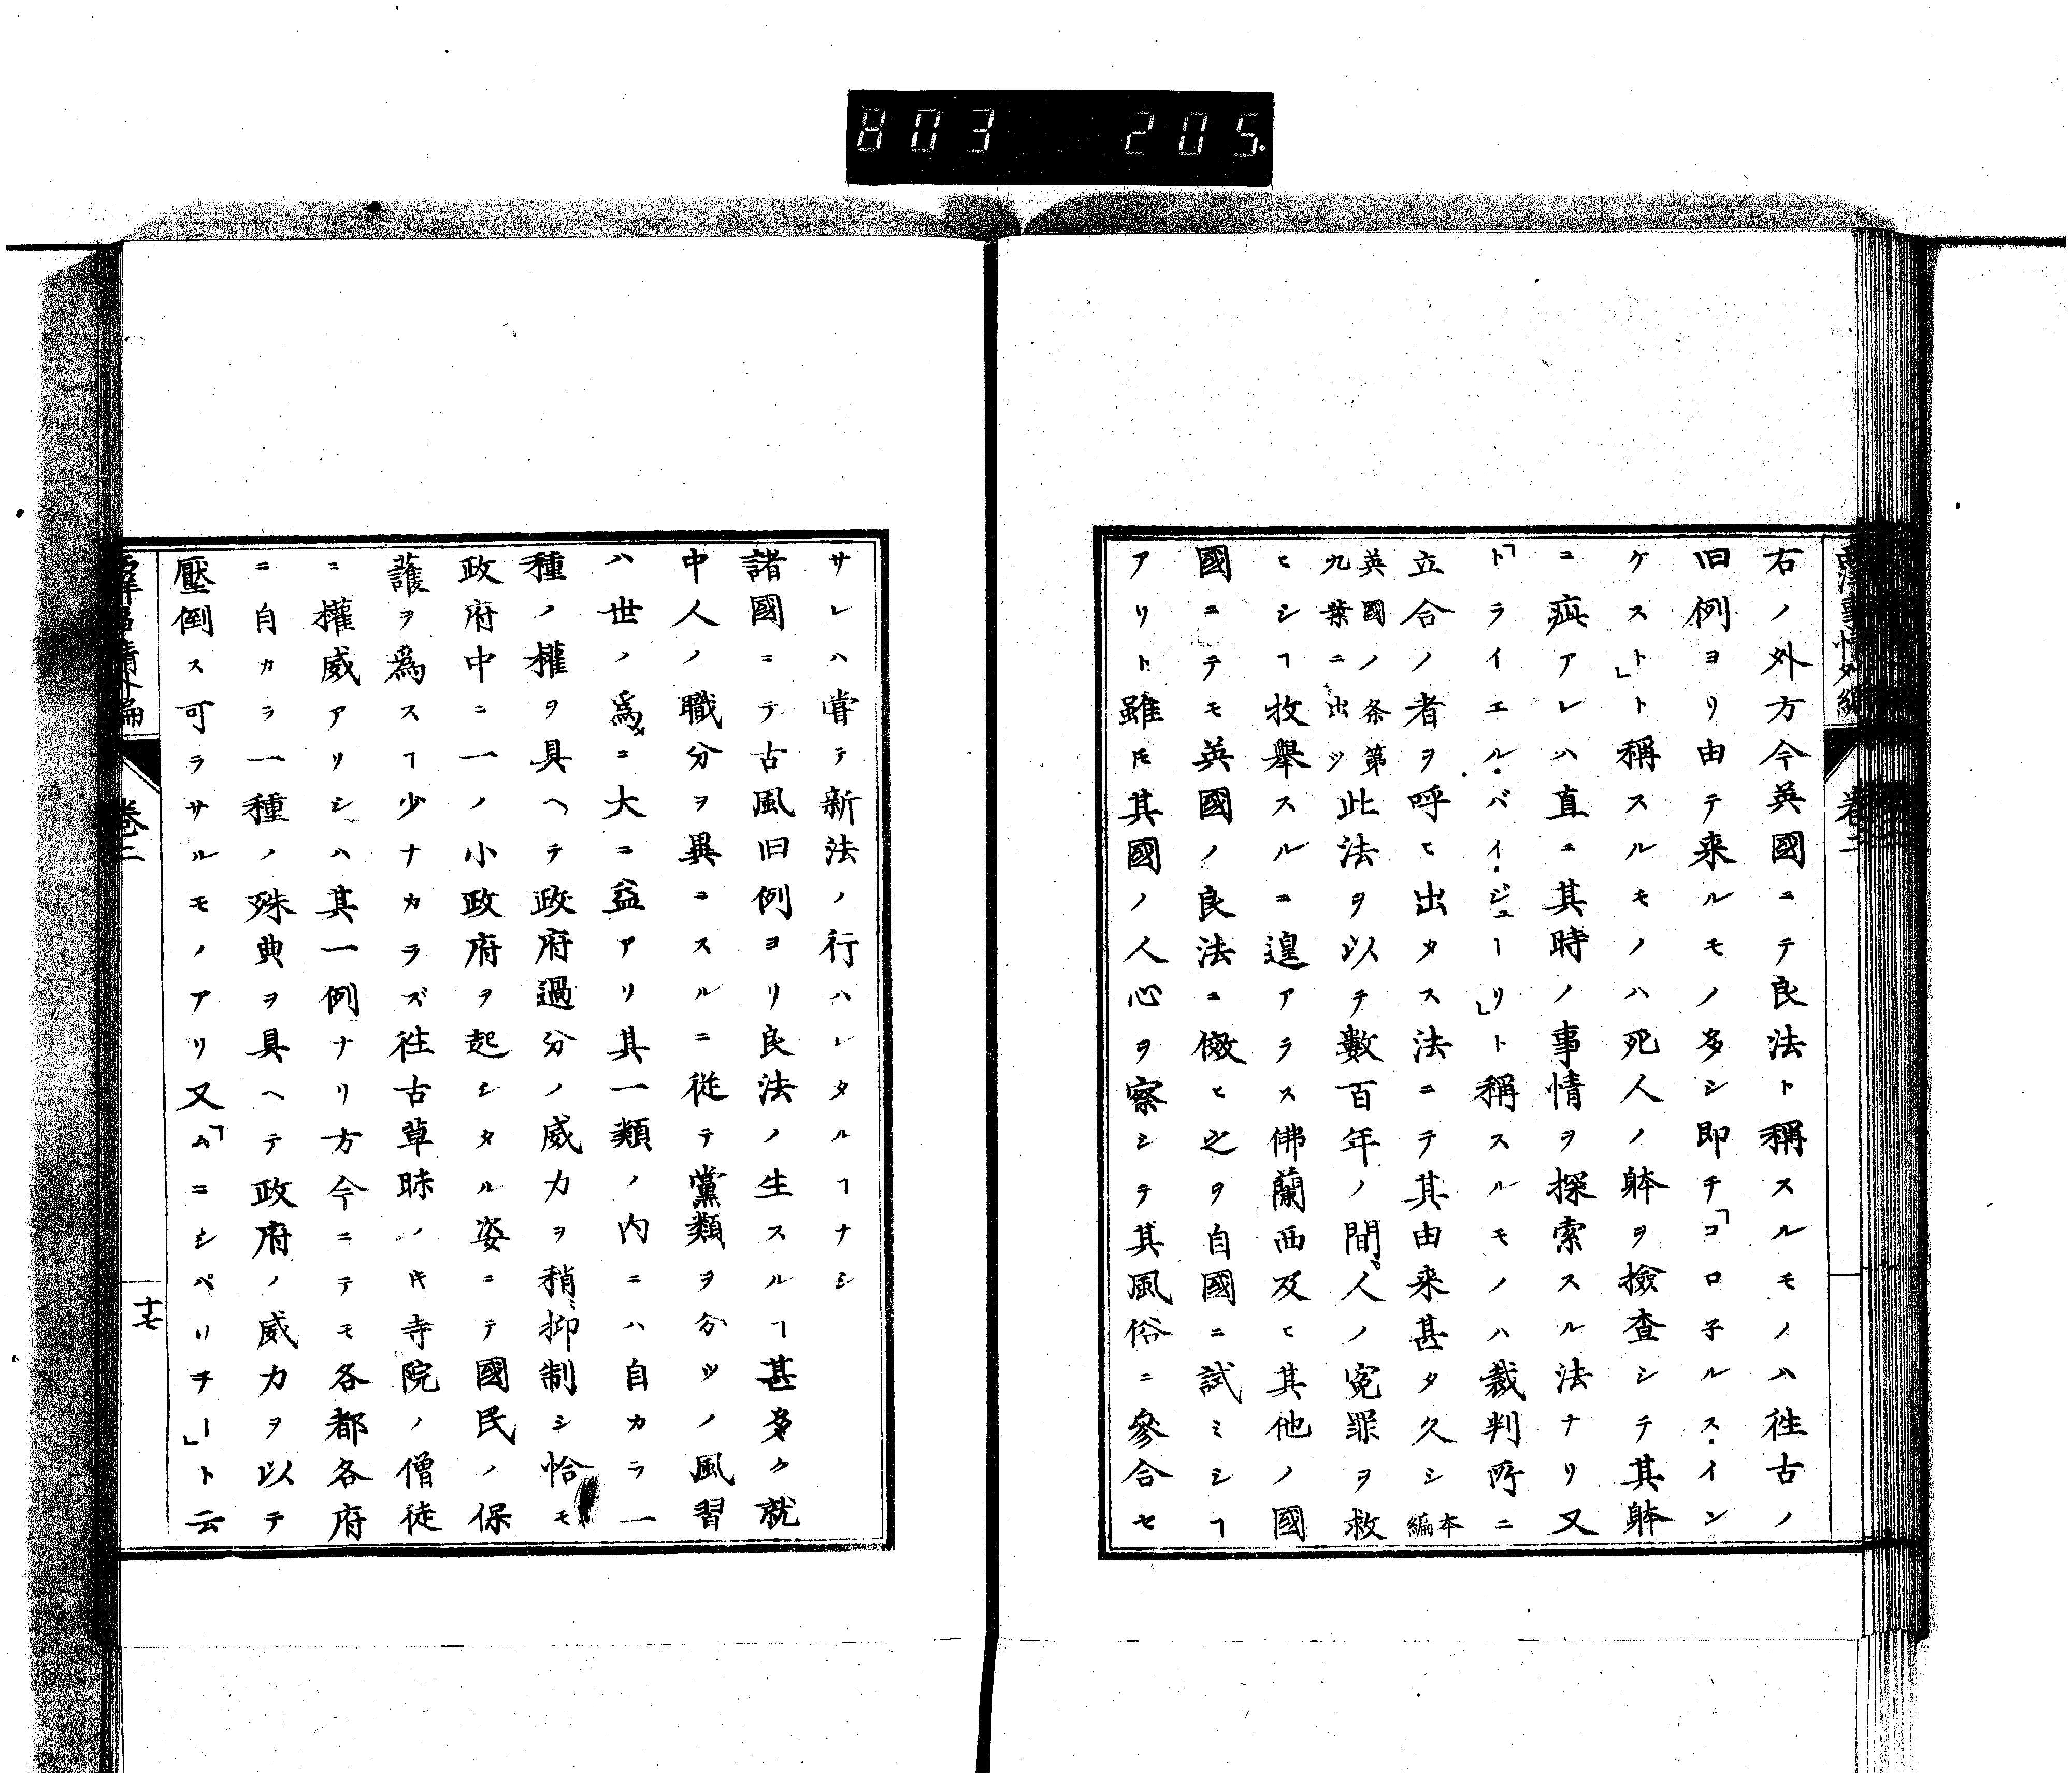 803 205.
西洋事情外編 巻二
右ノ外方今英國ニテ良法ト稱スルモノハ徃古ノ
旧例ヨリ由テ来ルモノ多シ即チ「コロ子ルス・イン
ケスト」ト稱スルモノハ死人ノ躰ヲ撿査シテ其躰
ニ疵アレハ直ニ其時ノ事情ヲ探索スル法ナリ又
「トライエル・バイ・ジューリ」ト稱スルモノハ裁判所ニ
立合ノ者ヲ呼ヒ出タス法ニテ其由来甚タ久シ本編
英國ノ条第九葉ニ出ツ此法ヲ以テ數百年ノ間人ノ冤罪ヲ救
ヒシヿ枚擧スルニ遑アラス佛蘭西及ヒ其他ノ國
國ニテモ英國ノ良法ニ傚ヒ之ヲ自國ニ試ミシヿ
アリト雖𪜈其國ノ人心ヲ察シテ其風俗ニ參合セ
サレハ甞テ新法ノ行ハレタルヿナシ
諸國ニテ古風旧例ヨリ良法ノ生スルヿ甚多ク就
中人ノ職分ヲ異ニスルニ從テ黨類ヲ分ツノ風習
ハ世ノ爲メニ大ニ益アリ其一類ノ内ニハ自カラ一
種ノ權ヲ具ヘテ政府過分ノ威力ヲ稍抑制シ恰モ
政府中ニ一ノ小政府ヲ起シタル姿ニテ國民ノ保
護ヲ爲スヿ少ナカラズ徃古草昧ノキ寺院ノ僧徒
ニ權威アリシハ其一例ナリ方今ニテモ各都各府
ニ自カラ一種ノ殊典ヲ具ヘテ政府ノ威力ヲ以テ
壓倒ス可ラサルモノアリ又「ムニシパリチー」ト云
巻二
十七